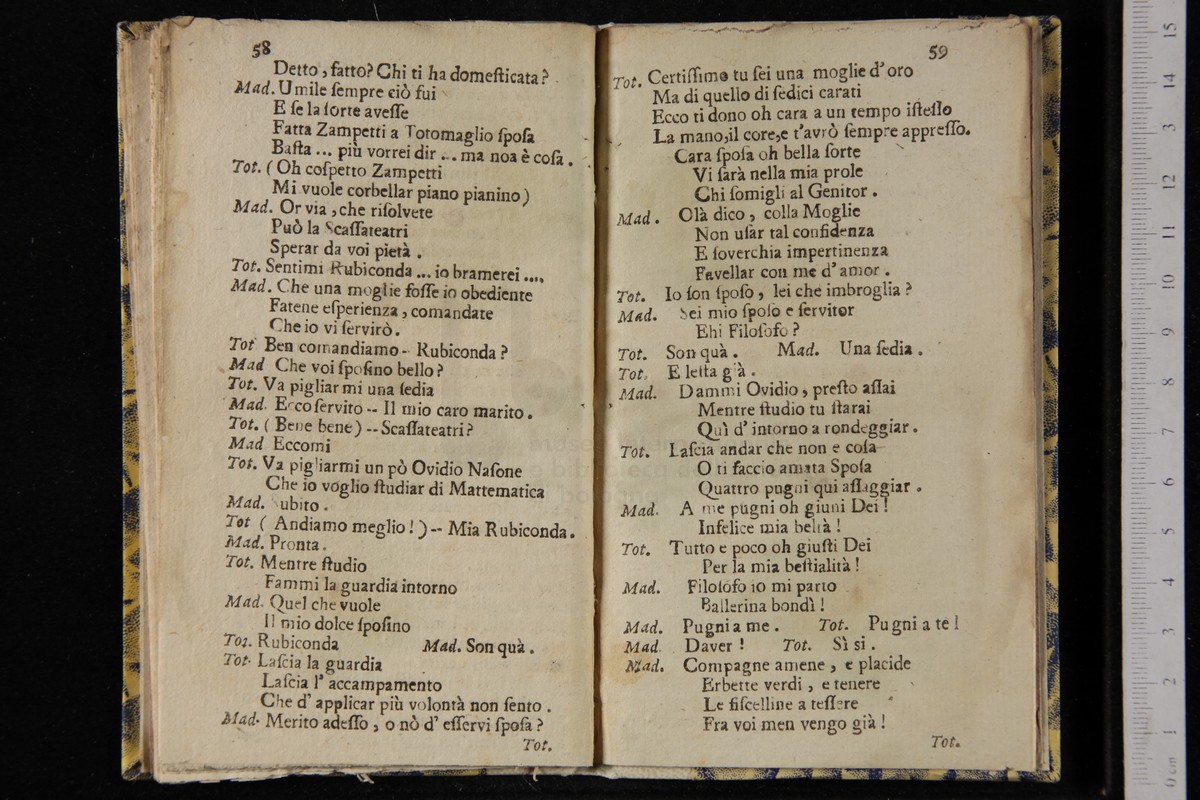 58
Detto, fatto? Chi ti ha domeſticata?
Mad. Umile ſempre ciò fui
E ſe la ſorte aveſſe
Fatta Zampetti a Totomaglio ſpoſa
Baſta ... più vorrei dir ... ma noa è coſa.
Tot. (Oh coſpetto Zampetti
Mi vuole corbellar piano pianino)
Mad. Or via, che riſolvete
Può la Scaſſateatri
Sperar da voi pietà.
Tot. Sentimi Rubiconda ... io bramerei ....
Mad. Che una moglie foſſe io obediente
Fatene eſperienza, comandate
Che io vi ſervirò.
Tot Ben comandiamo-- Rubiconda?
Mad Che voi ſpoſino bello?
Tot. Va pigliarmi una ſedia
Mad. Ecco ſervito -- Il mio caro marito.
Tot. (Bene bene) -- Scaſſateatri?
Mad Eccomi
Tot. Va pigliarmi un pò Ovidio Naſone
Che io voglio ſtudiar di Mattematica
Mad. Subito.
Tot ( Andiamo meglio! ) -- Mia Rubiconda.
Mad. Pronta.
Tot. Mentre ſtudio
Fammi la guardia intorno
Mad. Quel che vuole
Il mio dolce ſpoſino
Tot. Rubiconda Mad. Son quà.
Tot. Laſcia la guardia
Laſcia l' accampamento
Che d' applicar più volontà non ſento.
Mad. Merito adeſſo, o nò d' eſſervi ſpoſa?
Tot.
59
Tot. Certiſſimo tu ſei una moglie d' oro
Ma di quello di ſedici carati
Ecco ti dono oh cara a un tempo iſteſſo
La mano, il core, e t'avrò ſempre appreſſo.
Cara ſpoſa oh bella ſorte
Vi ſarà nella mia prole
Chi ſomigli al Genitor.
Mad. Olà dico, colla Moglie
Non uſar tal confidenza
E ſoverchia impertinenza
Favellar con me d' amor.
Tot. Io ſon ſpoſo, lei che imbroglia?
Mad. Sei mio ſpoſo e ſervitor
Ehi Filoſofo?
Tot. Son quà. Mad. Una ſedia.
Tot. E letta già.
Mad. Dammi Ovidio, preſto aſſai
Mentre ſtudio tu ſtarai
Quì d' intorno a rondeggiar.
Tot. Laſcia andar che non e coſa
O ti faccio amata Spoſa
Quattro pugni qui aſſaggiar.
Mad. A me pugni oh giuni Dei!
Infelice mia beltà!
Tot. Tutto e poco oh giuſti Dei
Per la mia beſtialità!
Mad. Filoſofo io mi parto
Ballerina bondì!
Mad. Pugni a me. Tot. Pugni a te!
Mad. Daver! Tot. Sì si.
Mad. Compagne amene, e placide
Erbette verdi, e tenere
Le fiſcelline a teſſere
Fra voi men vengo già!
Tot.